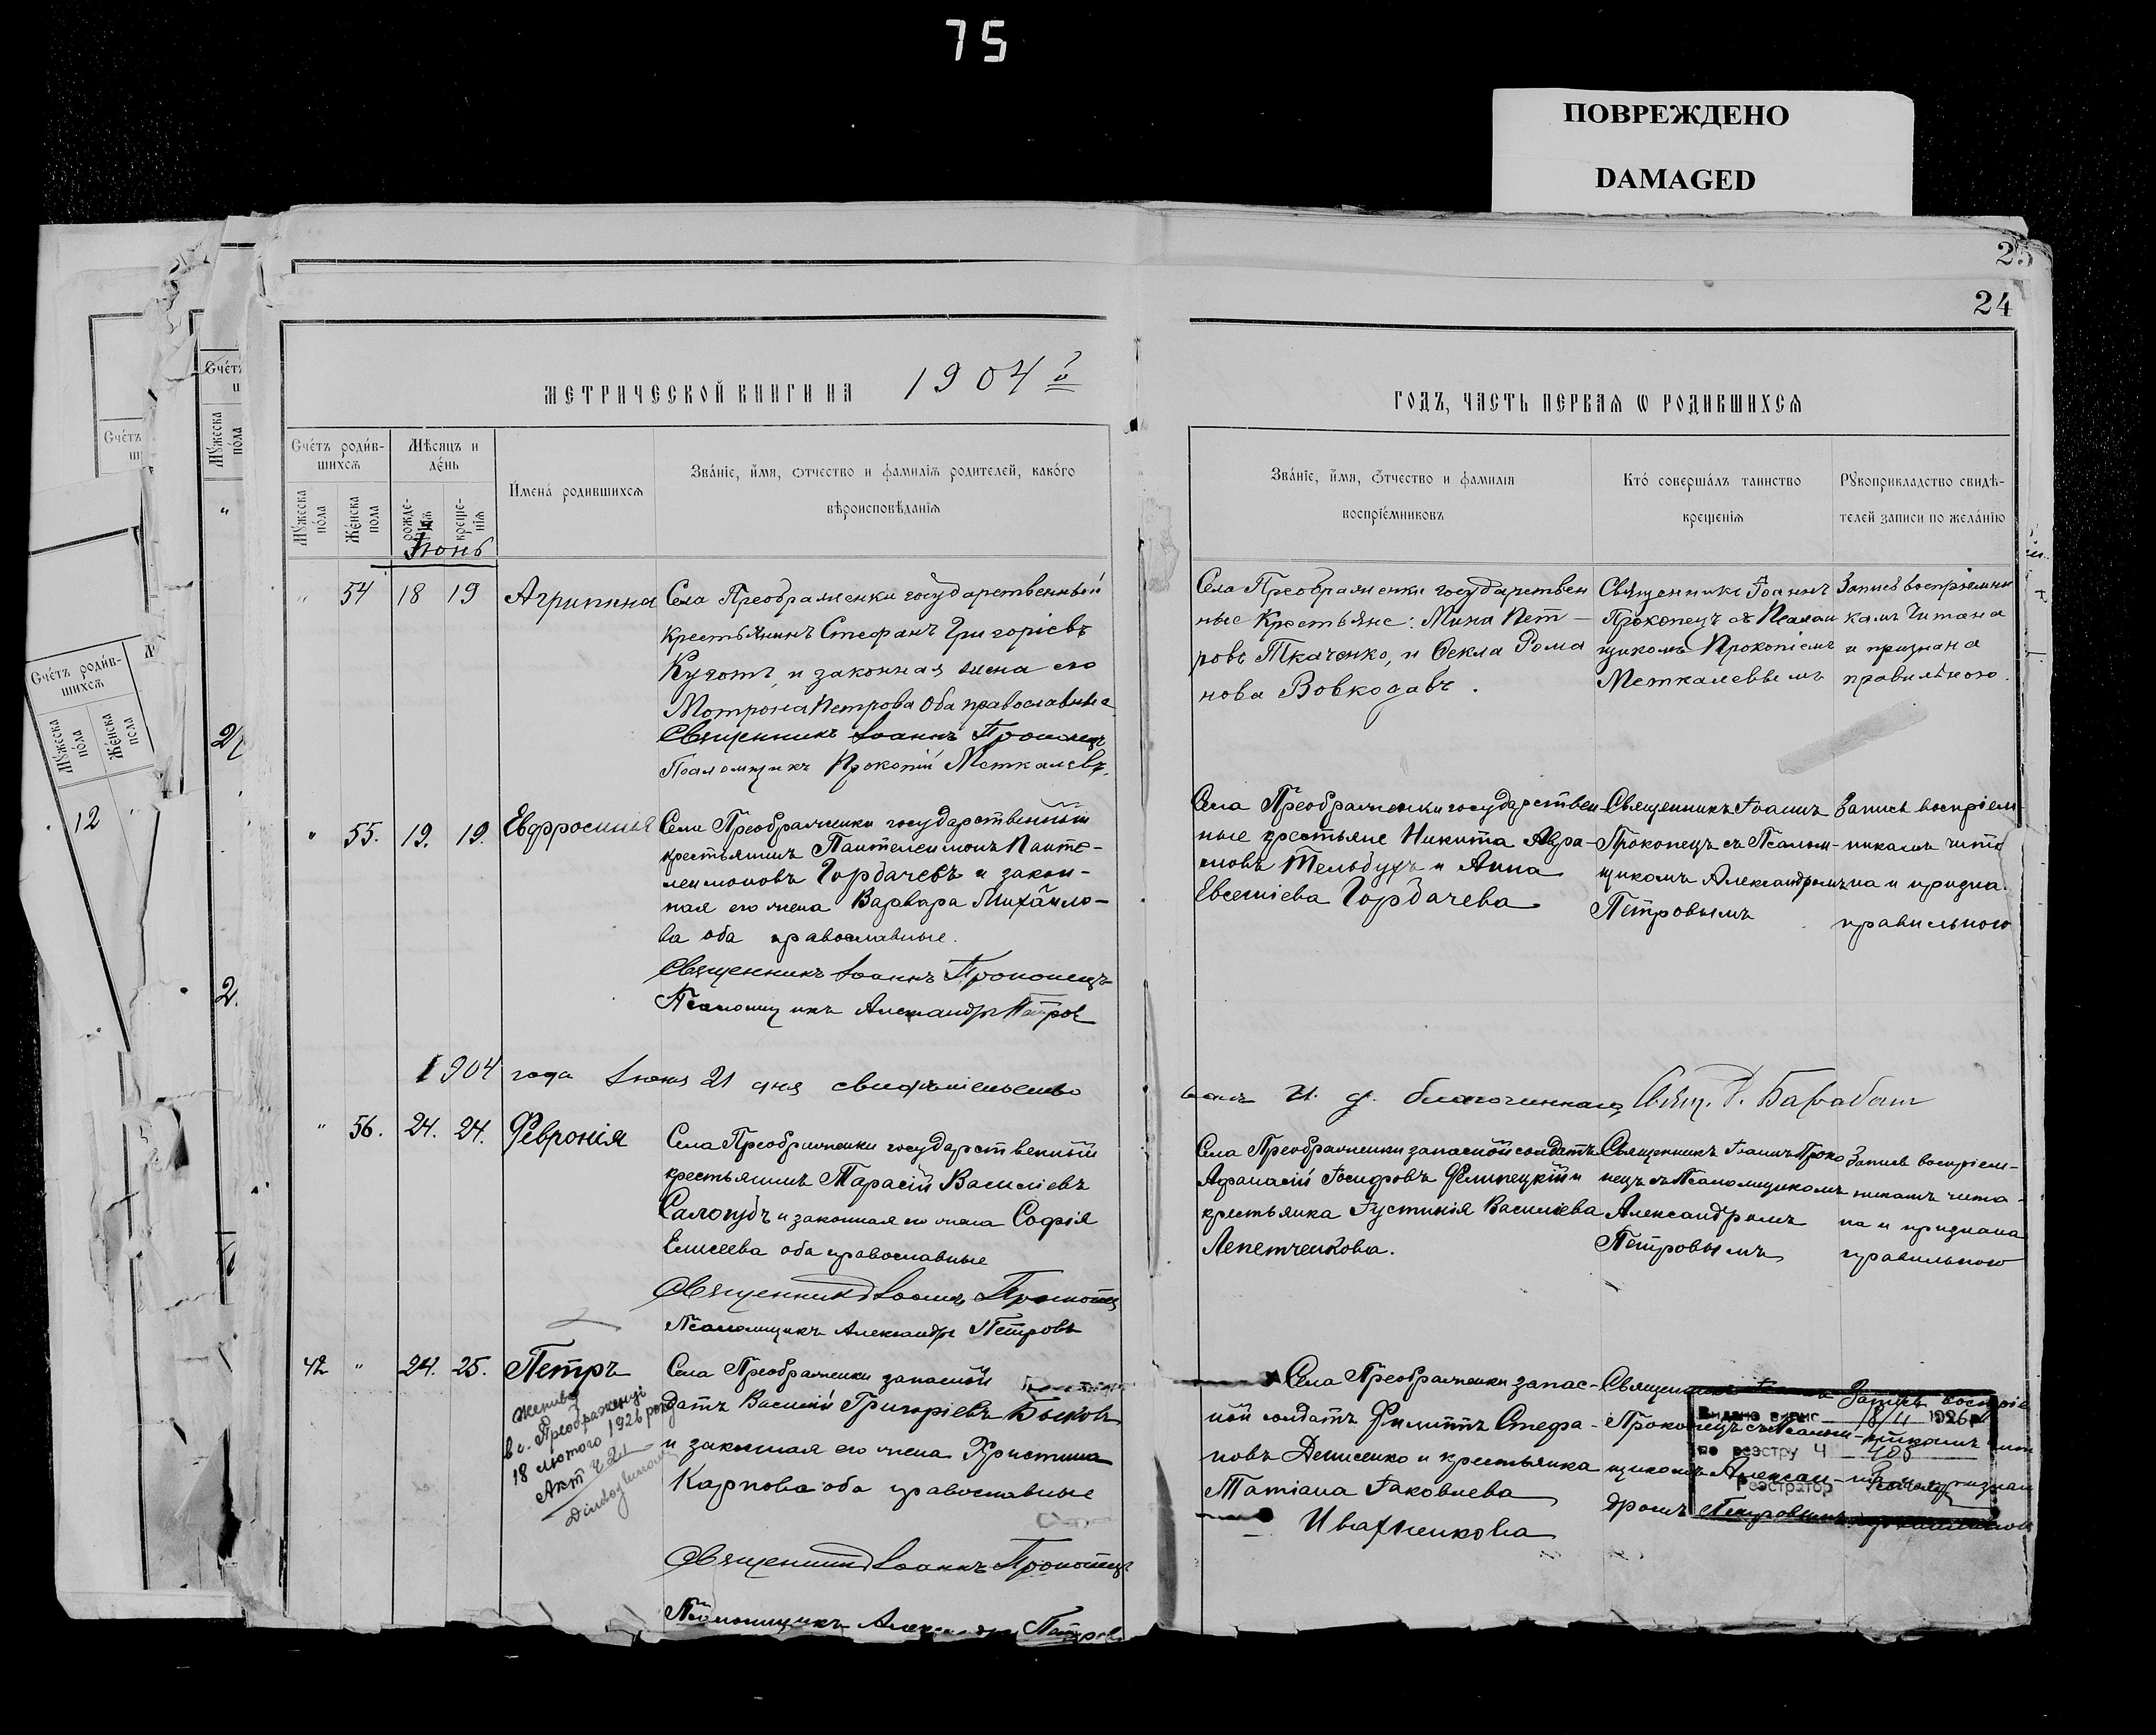 75
ПОВРЕЖДЕНО
DAMAGED
25
24
МЕТРИЧЕСКОЙ КНИГИ НА 1904 й
ГОДЪ, ЧАСТЬ ПЕРВАЯ Ѡ РОДИВШИХСЯ
Счетъ родив-
шихся
Мужеска
пола
Женска
пола
Мѣсяцъ и
день
рожде-
нія
креще-
нія
Имена родившихся
Званіе, имя, отчество и фамилія родителей, какого
вѣроисповѣданія
Званіе, имя, отчество и фамилія
воспріемниковъ
Кто совершалъ таинство
крещенія
Рукоприкладство свидѣ-
телей записи по желанію
Іюнь
" 54 18 19 Агрипина
Села Преображенки государственный
крестьянинъ Стефанъ Григоріевъ
и законная жена его
Мотрона Петрова оба православные
Священникъ Іоаннъ Прокопецъ
Псаломщикъ Прокопій Меткалевъ.
Села Преображенки государствен
ные Крестьяне: Мина Пет-
ровъ Ткаченко, и Ѳекла Рома
нова Вовкодавъ.
Священникъ Іоаннъ
Прокопецъ съ Псалом
щикомъ Прокопіемъ
Меткалевымъ
Запись воспріемни
камъ читана
и признана
правильною.
" 55. 19. 19. Евфросинія
Села Преображенки государственный
крестьянинъ Пантелеимонъ Панте-
леимоновъ Горбачевъ и закон-
ная его жена Варвара Михайло-
ва оба православные.
Священникъ Іоаннъ Прокопецъ
Псаломщикъ Александръ Петровъ
Села Преображенки государствен-
ные крестьяне Никита Авра-
мовъ Тельбухъ и Анна
Евсегніева Горбачева
Священникъ Іоаннъ
Прокопецъ съ Псалом-
щикомъ Александромъ
Петровымъ
Запись воспріем-
никамъ чита
на и призна
правильною
1904 года Іюня 21 дня свидѣтельство
валъ И. д. благочиннаго Свящ. Барабаш
" 56. 24. 24. Февронія
Села Преображенки государственный
крестьянинъ Тарасій Василіевъ
и законная его жена Софія
Елисеева оба православные
Священникъ Іоаннъ Прокопецъ
Псаломщикъ Александръ Петровъ
Села Преображенки запасной солдатъ
Афанасій Іосифовъ Филипецкій и
крестьянка Іустинія Василіева
Лепетченкова.
Священникъ Іоаннъ Проко
пецъ съ Псаломщикомъ
Александромъ
Петровымъ
Запись воспріем-
никамъ чита-
на и признана
правильною
42 " 24. 25. Петръ
Женивсь
в с. Преображенці
18 лютого 1926 року
Акт Ч 21
Села Преображенки запасной
датъ Василій Григоріевъ Быковъ
и законная его жена Христина
Карпова оба православные
Священникъ Іоаннъ Прокопецъ
Псаломщикъ Александръ Петровъ
Села Преображенки запас-
ной солдатъ Филиппъ Стефа-
новъ Денисенко и крестьянка
Татіана Іаковлева
Ивахненкова
Священникъ
Прокопецъ съ Псалом-
щикомъ Алексан-
дромъ Петровымъ
Запись воспріе
Видано випис 18/II 1926 р
по реєстру Ч 485
Реєстратор
12